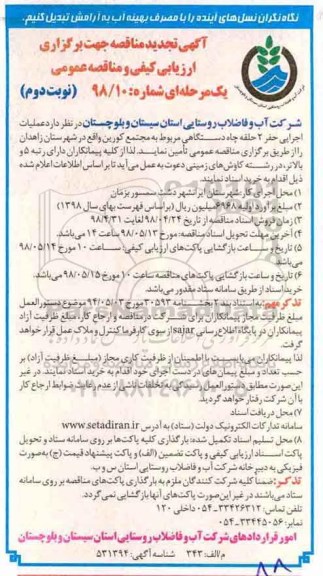 نگاه نگران نسل‌های آینده را با مصرف بهینه آب به آرامش تبدیل کنیم.
آگهی تجدید مناقصه جهت برگزاری
ارزیابی کیفی و مناقصه عمومی
یک مرحله‌ای شماره: ۹۸/۱۰ (نوبت دوم)
شرکت آب و فاضلاب روستایی استان سیستان و بلوچستان در نظر دارد عملیات
اجرایی حفر ۲ حلقه چاه دستگاهی مربوط به مجتمع کورین واقع در شهرستان زاهدان
را از طریق برگزاری مناقصه عمومی تأمین نماید. لذا از کلیه پیمانکاران دارای رتبه ۵ و
بالاتر در رشته کاوش‌های زمینی دعوت به عمل می‌آید تا بر اساس اطلاعات اعلام شده
ذیل اقدام به خرید اسناد نمایند.
۱) محل اجرای کار: شهرستان ایرانشهر دشت سمسور بزمان
۲) مبلغ برآورد اولیه ۴۹۴۸ میلیون ریال (براساس فهرست بهای سال ۱۳۹۸)
۳) زمان فروش اسناد مناقصه از تاریخ ۹۸/۰۴/۲۴ لغایت ۹۸/۴/۳۱
۴) آخرین مهلت تحویل اسناد مناقصه: مورخ ۹۸/۰۵/۱۳ ساعت ۱۴ می‌باشد.
۵) تاریخ و ساعت بازگشایی پاکت‌های ارزیابی کیفی: ساعت ۱۰ مورخ ۹۸/۰۵/۱۴
می‌باشد
۶) تاریخ و ساعت بازگشایی پاکت‌های مناقصه ساعت ۱۰ مورخ ۹۸/۰۵/۱۵ می‌باشد.
خرید اسناد از طریق سامانه ستاد مقدور می‌باشد.
تذکر مهم: به استناد بند ۲ بخشنامه ۳۰۵۹۳ مورخ ۹۴/۰۵/۰۳ موضوع دستورالعمل
مبلغ ظرفیت مجاز پیمانکاران برای شرکت در مناقصه و ارجاع کار، مبلغ ظرفیت آزاد
پیمانکاران در پایگاه اطلاع‌رسانی sajar از سوی کارفرما کنترل و ملاک عمل قرار خواهد
گرفت.
لذا پیمانکاران می‌بایست با اطمینان از ظرفیت کاری مجاز (مبلغ ظرفیت آزاد) بر
حسب تعداد و مبلغ پیمان های در دست اجرای خود اقدام به خرید اسناد نمایند. در غیر
این صورت مطابق دستورالعمل رسیدگی به تخلفات ناشی از عدم رعایت ضوابط ارجاع کار
با آن شرکت رفتار خواهد گردید.
۷) محل دریافت اسناد
سامانه تدارکات الکترونیک دولت (ستاد) به آدرس www.setadiran.ir
۸) محل تسلیم اسناد تکمیل شده: بارگذاری کلیه پاکت‌ها بر روی سامانه ستاد و تحویل
پاکت اسناد ارزیابی کیفی و پاکت تضمین (الف) و پاکت پیشنهاد قیمت (ج) به صورت
فیزیکی به دبیرخانه شرکت آب و فاضلاب روستایی استان س و ب.
تذکر: ضمنا کلیه شرکت کنندگان ملزم به بارگذاری پاکت‌های مناقصه بر روی سامانه
ستاد می‌باشند در غیر این صورت پاکت‌های آنها بازگشایی نمی‌گردد.
تلفن تماس: ۳۳۴۲۶۳۱۲-۰۵۴ داخلی ۱۲۰
نمابر: ۳۳۴۴۵۰۵۶-۰۵۴
امور قراردادهای شرکت آب و فاضلاب روستایی استان سیستان و بلوچستان
م/الف: ۳۴۳ شناسه آگهی: ۵۳۱۳۹۴